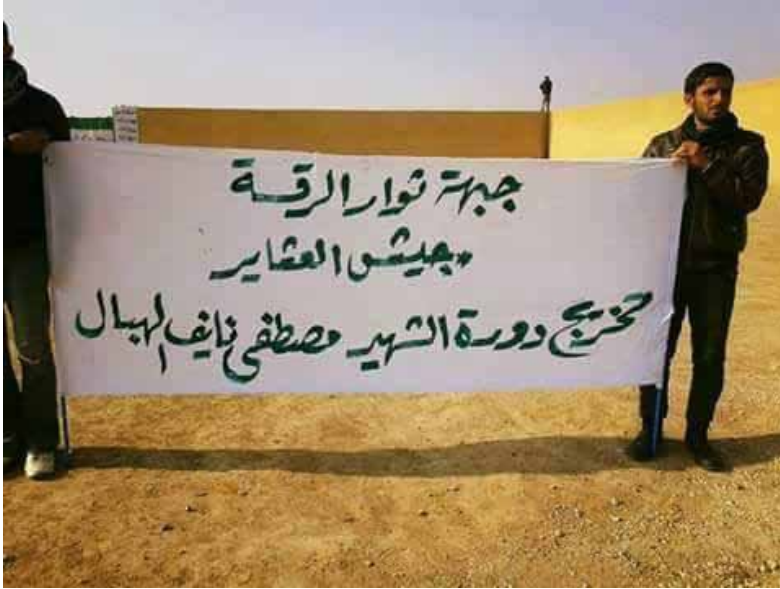 جبهة ثوار الرقة
جيش العشاير
تخريج دورة الشهيد مصطفى نايف الهبال